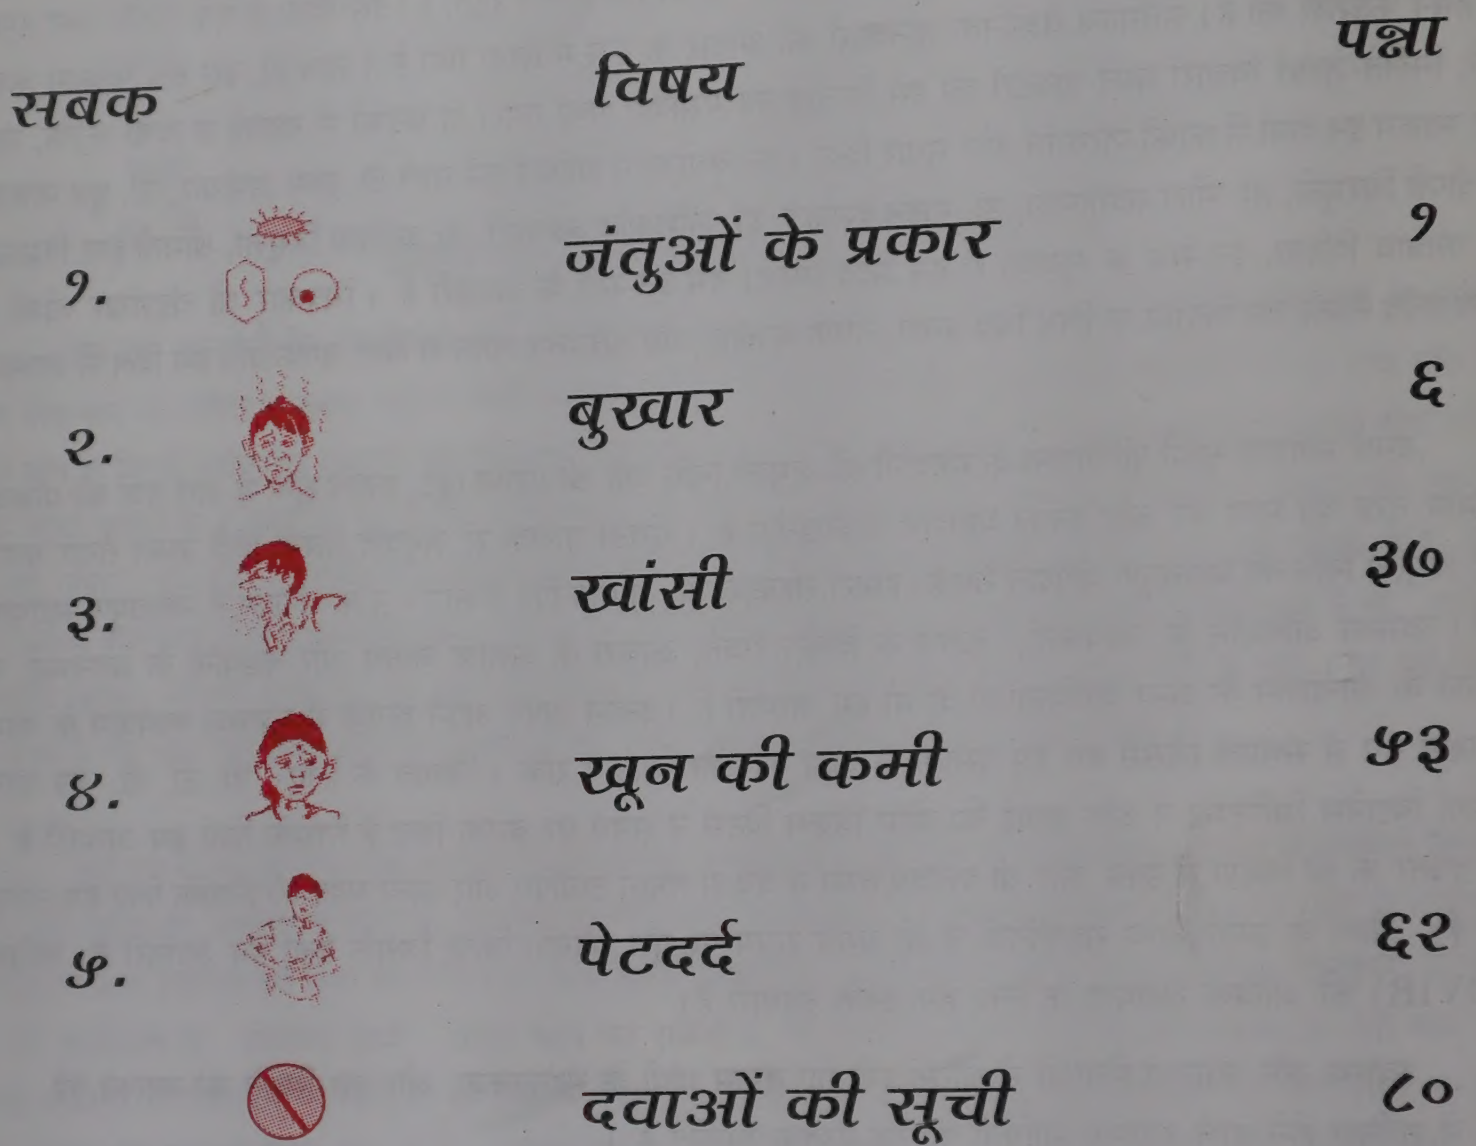 सबक विषय पन्ना
१. जंतुओं के प्रकार १
२. बुखार ६
३. खांसी ३७
४. खून की कमी ५३
५. पेटदर्द ६२
दवाओं की सूची ८०